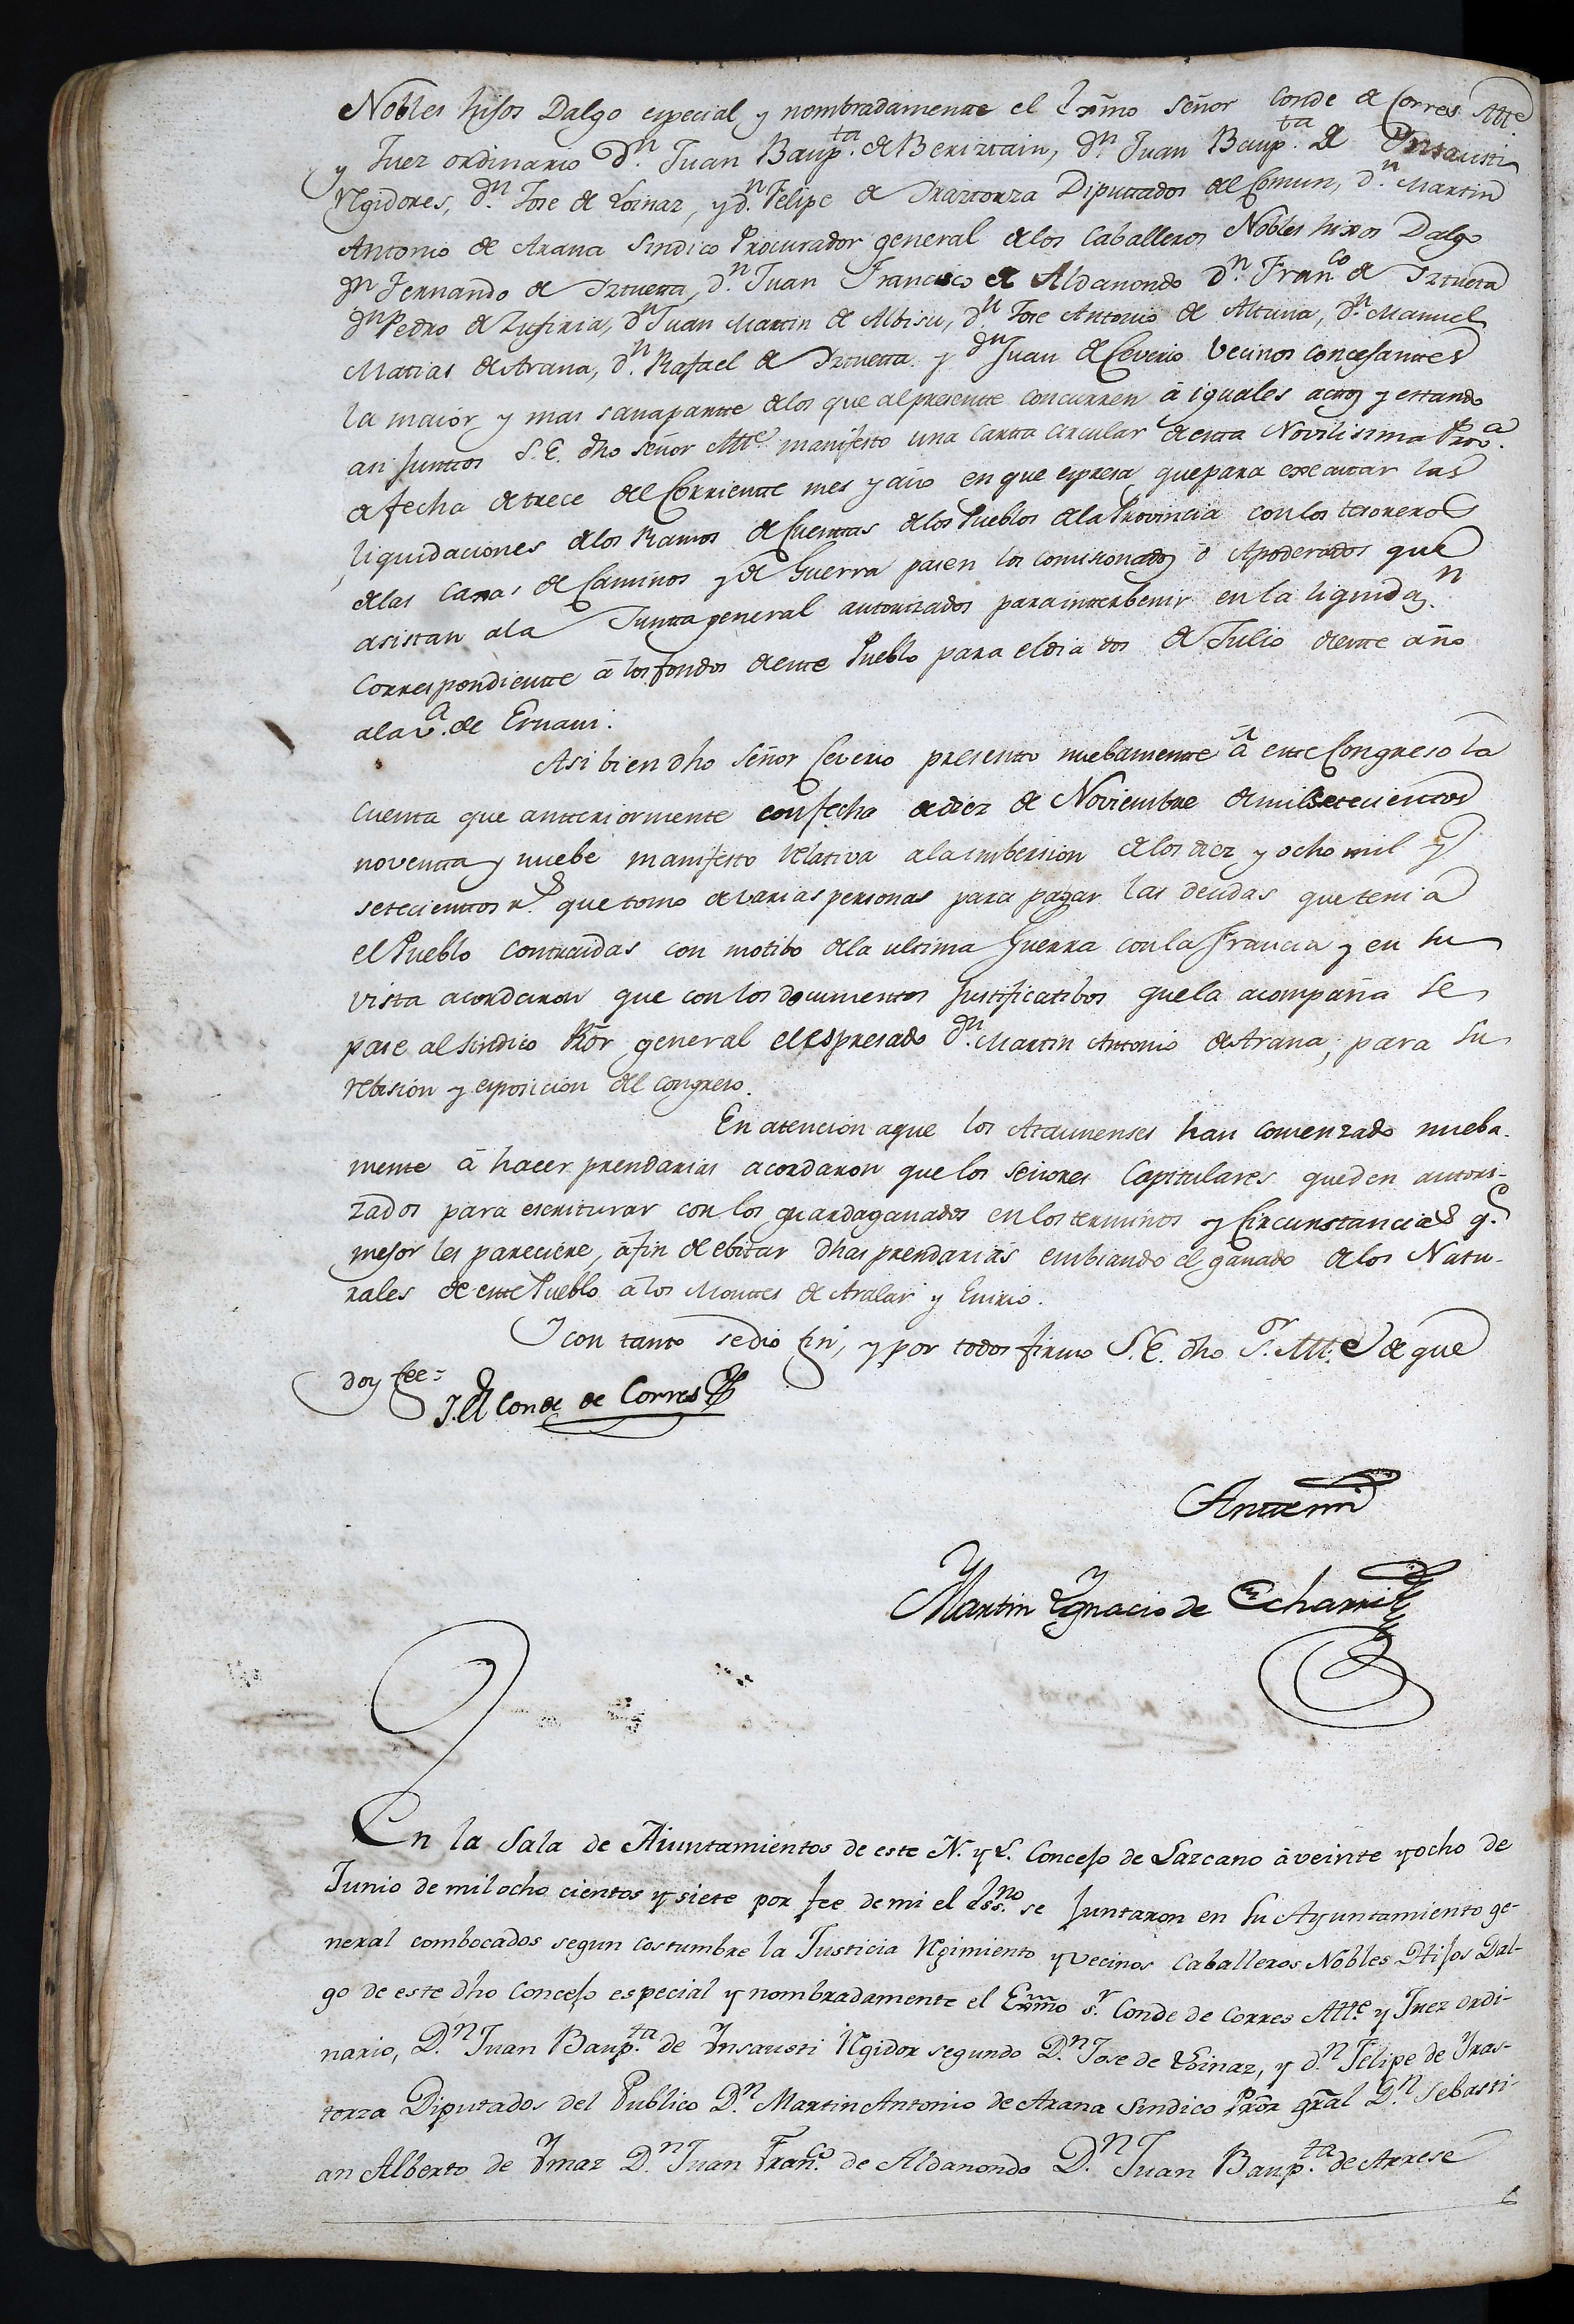 Nobles hijos Dalgo especial y nombradamente el Exm̃o señor Conde de Corres Alte.
y Juez ordinario Dn. Juan Baupta. de Beriztain, Dn. Juan Baupta. de Insausti
Rejidores, Dn. Jose de Loinaz, y d.n Felipe de Iraztorza Diputtados del Comun, Dn. Martin
Antonio de Arana Sindico Procurador general de los Caballeros Nobles hixos Dalgo
Dn Fernando de Iztuetta, Dn. Juan Francisco de Aldanondo Dn. Franco. de Iztueta
Dn Pedro de Zufiria, Dn Juan Martin de Albisu, Dn. Jose Antonio de Altuna, Dn. Manuel
Matias de Arana, Dn. Rafael de Iztuetta y Dn Juan de Ceverio Vecinos concejanttes
la maior y mas sana partte de los que al presentte concurren â iguales actos y estando
asi junttos S. E. dho señor Altte. manifesto una cartta circular de esta Novilisima Prova.
de fecha de trece del Corrientte mes y año en que espresa, que para executar las
liquidaciones de los Ramos de Cuenttas de los Pueblos de la Provincia con los tesoreros
de las caxas de Caminos y de Guerra pasen los comisionados ô Apoderados que
asistan a la Juntta general autorizados para intterbenir en la liquidazn.
correspondientte â los fondos de estte Pueblo para el dia dos de Julio de estte año
a la va. de Ernani.
Asi bien dho señor Ceverio presentto nuebamentte â estte Congreso la
cuenta que antteriormente con fecha de diez de Noviembre de mil setecienttos
noventta y nuebe manifesto relativa a la imbersion de los diez y ocho mil y
setecienttos rs. que tomo de varias personas para pagar las deudas que tenia
el Pueblo contraidas con motibo de la ultima Guerra con la Francia y en su
vista acordaron que con los documentos justificatibos que la acompaña se
pase al sindico Prõr general el espresado Dn. Martin Antonio de Arana, para su
rebision y esposicion del congreso.
En atencion a que los Ataunenses han comenzado nueba-
mente â hacer prendarias acordaron que los señores Capitulares queden autori-
zados para escriturar con los guardaganados en los terminos y Circunstancias q.e
mejor les pareciere, â fin de ebitar dhas prendarias embiando el ganado de los Natu-
rales de estte Pueblo â los Montes de Aralar y Enirio.
Y con tanto se dio fin, y por todos firmo S. E. dho Sr. Altte. de que
doy fee =
J. El Conde de Corres
Antte mi
Martin Ygnacio de Echarri
En la Sala de Aiuntamientos de este N. y L. Concejo de Lazcano â veinte y ocho de
Junio de mil ocho cientos y siete por fee de mi el Essno. se juntaron en su Ayuntamiento ge-
neral combocados segun costumbre la Justicia Rejimiento y Vecinos Caballeros Nobles Hijos Dal-
go de este dho Concejo especial y nombradamente el Exm̃o sr. Conde de Corres Alte. y Juez ordi-
nario, Dn. Juan Baupta. de Ynsausti Rejidor segundo Dn. Jose de Loinaz, y dn. Felipe de Yras-
torza Diputados del Publico Dn. Martin Antonio de Arana Sindico Prõr grãl Dn. Sebasti-
an Alberto de Ymaz Dn. Juan Franco. de Aldanondo Dn. Juan Baupta. de Arrese